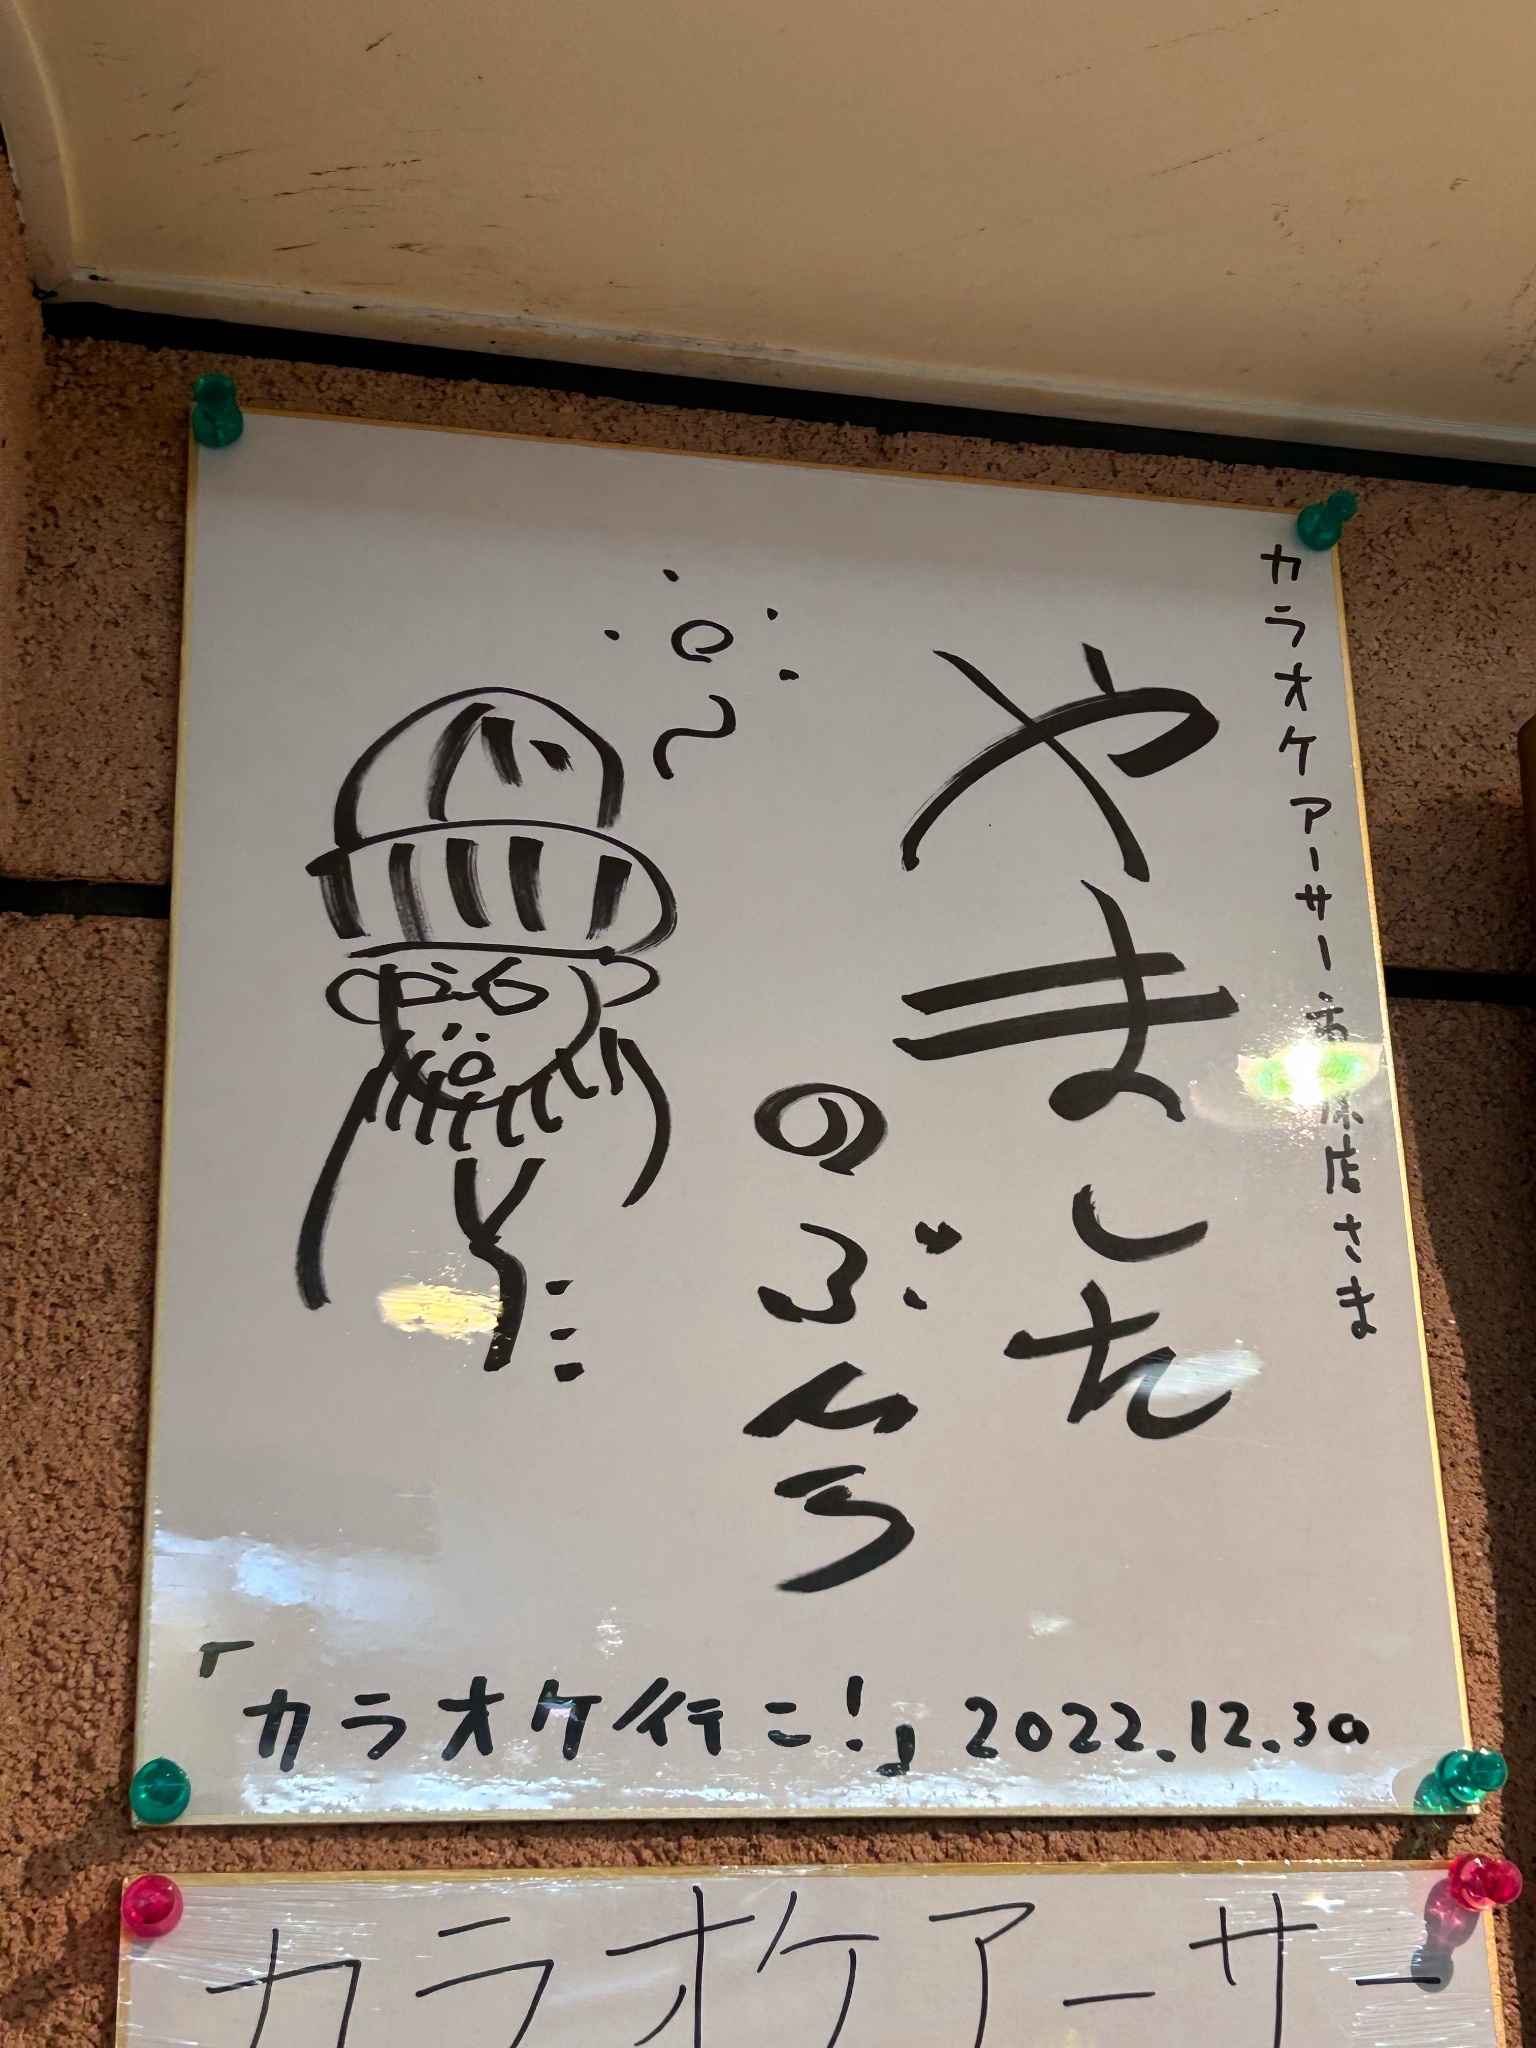 カラオケアーサー市原店さま
やました
のぶひろ
「カラオケ行こ！」2022.12.30
カラオケアーサー